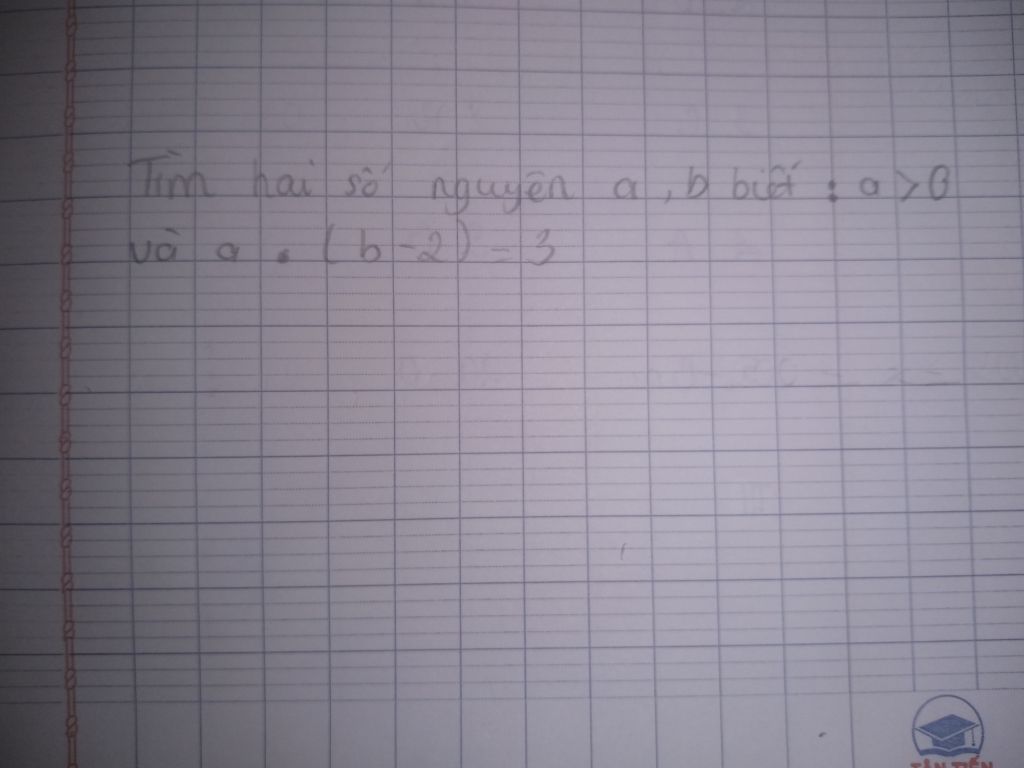 Tìm hai số nguyên a, b biết : a > 0
và a . (b - 2) = 3
TÂN TIẾN